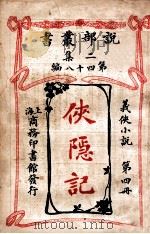 說部叢書
二集
第四十八編
義俠小說 第四冊
俠隱記
上海商務印書館發行